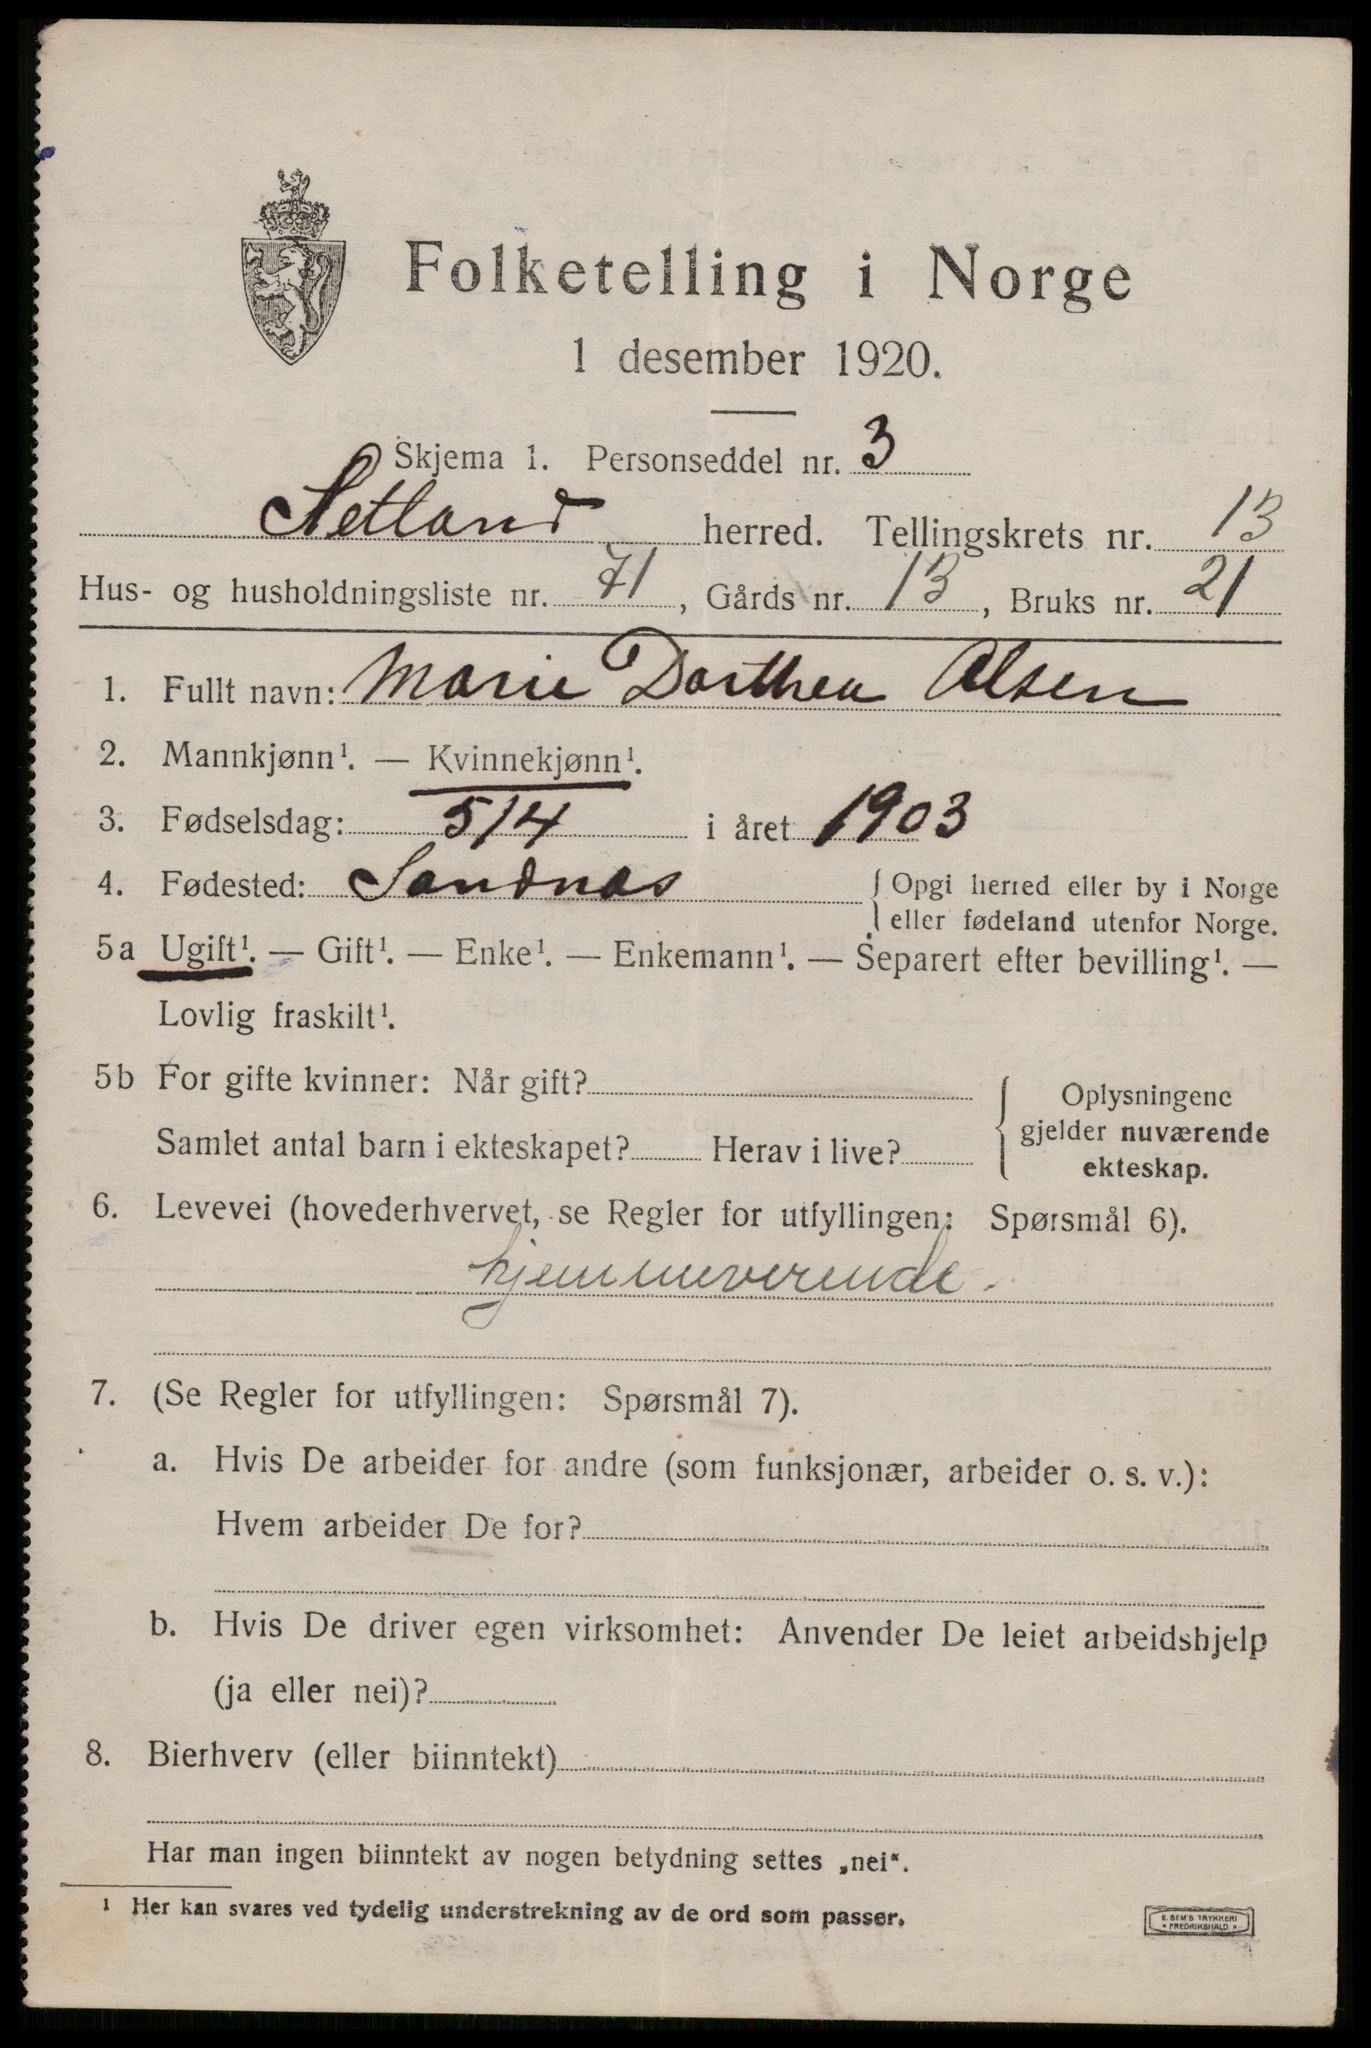 Folketelling i Norge
1 desember 1920.
Skjema 1. Personseddel nr. 3
Hetland herred. Tellingskrets nr. 13
Hus- og husholdningsliste nr. 71, Gårds nr. 13, Bruks nr. 21
1. Fullt navn: Marie Dorthea Olsen
2. Mannkjønn¹. — Kvinnekjønn¹.
3. Fødselsdag: 5/4 i året 1903
4. Fødested: Sandnes { Opgi herred eller by i Norge
eller fødeland utenfor Norge.
5a Ugift¹. — Gift¹. — Enke¹. — Enkemann¹. — Separert efter bevilling¹. —
Lovlig fraskilt¹.
5b For gifte kvinner: Når gift?
Samlet antal barn i ekteskapet? Herav i live?
Oplysningene
gjelder nuværende
ekteskap.
6. Levevei (hovederhvervet, se Regler for utfyllingen: Spørsmål 6).
hjemmeverende.
7. (Se Regler for utfyllingen: Spørsmål 7).
a. Hvis De arbeider for andre (som funksjonær, arbeider o. s. v.):
Hvem arbeider De for?
b. Hvis De driver egen virksomhet: Anvender De leiet arbeidshjelp
(ja eller nei)?
8. Bierhverv (eller biinntekt)
Har man ingen biinntekt av nogen betydning settes „nei“.
¹ Her kan svares ved tydelig understrekning av de ord som passer.
E. SEM'S TRYKKERI
* FREDRIKSHALD *